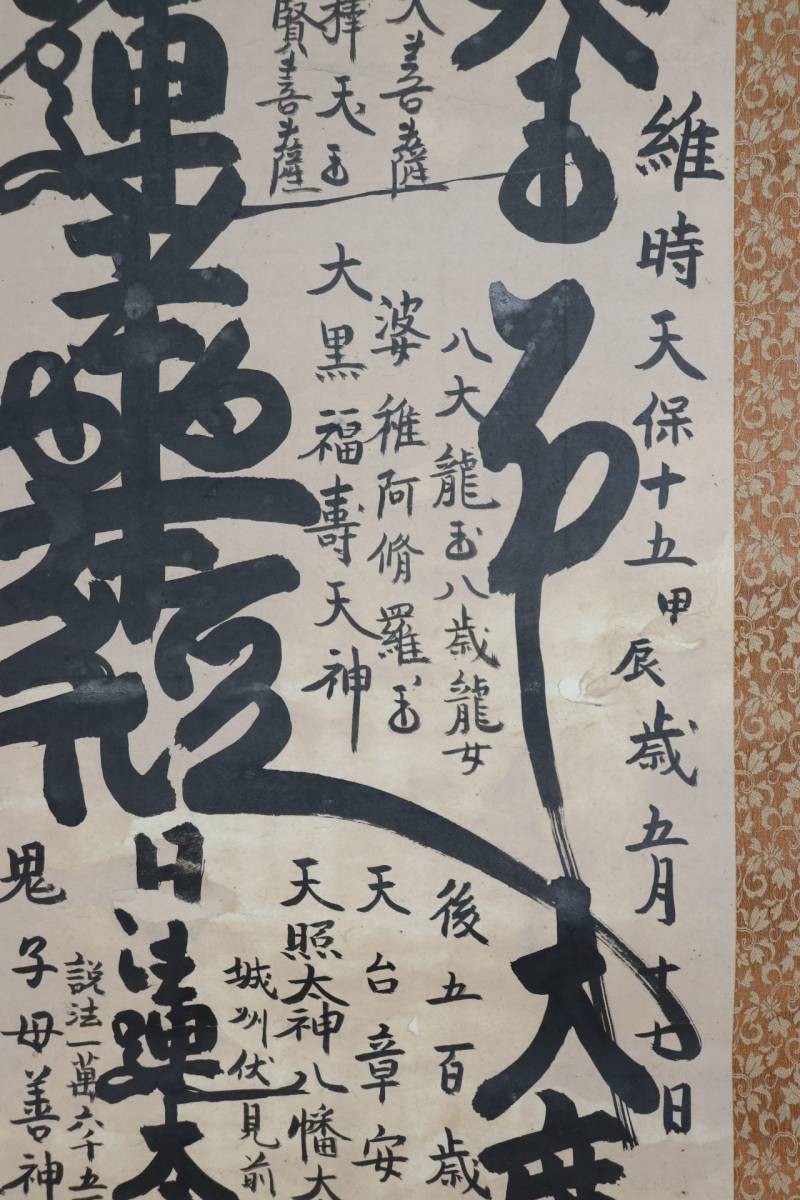 維時天保十五甲辰歳五月十七日
大善薩
釋天王
賢善薩
八大龍王八歳龍女
婆稚阿脩羅王
大黒福壽天神
蓮華經
日蓮大
後五百歳
天台章安
天照太神八幡大
城州伏見前
説法一萬六千五
鬼子母善神